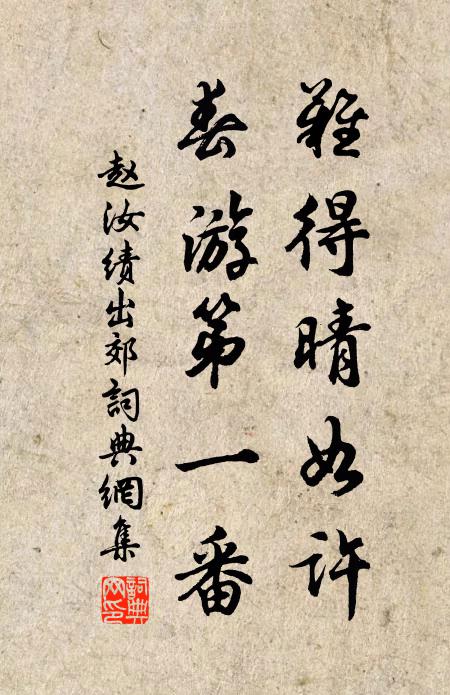 難得晴如許
春游第一番
赵汝績出郊詞典網集
詞典网印